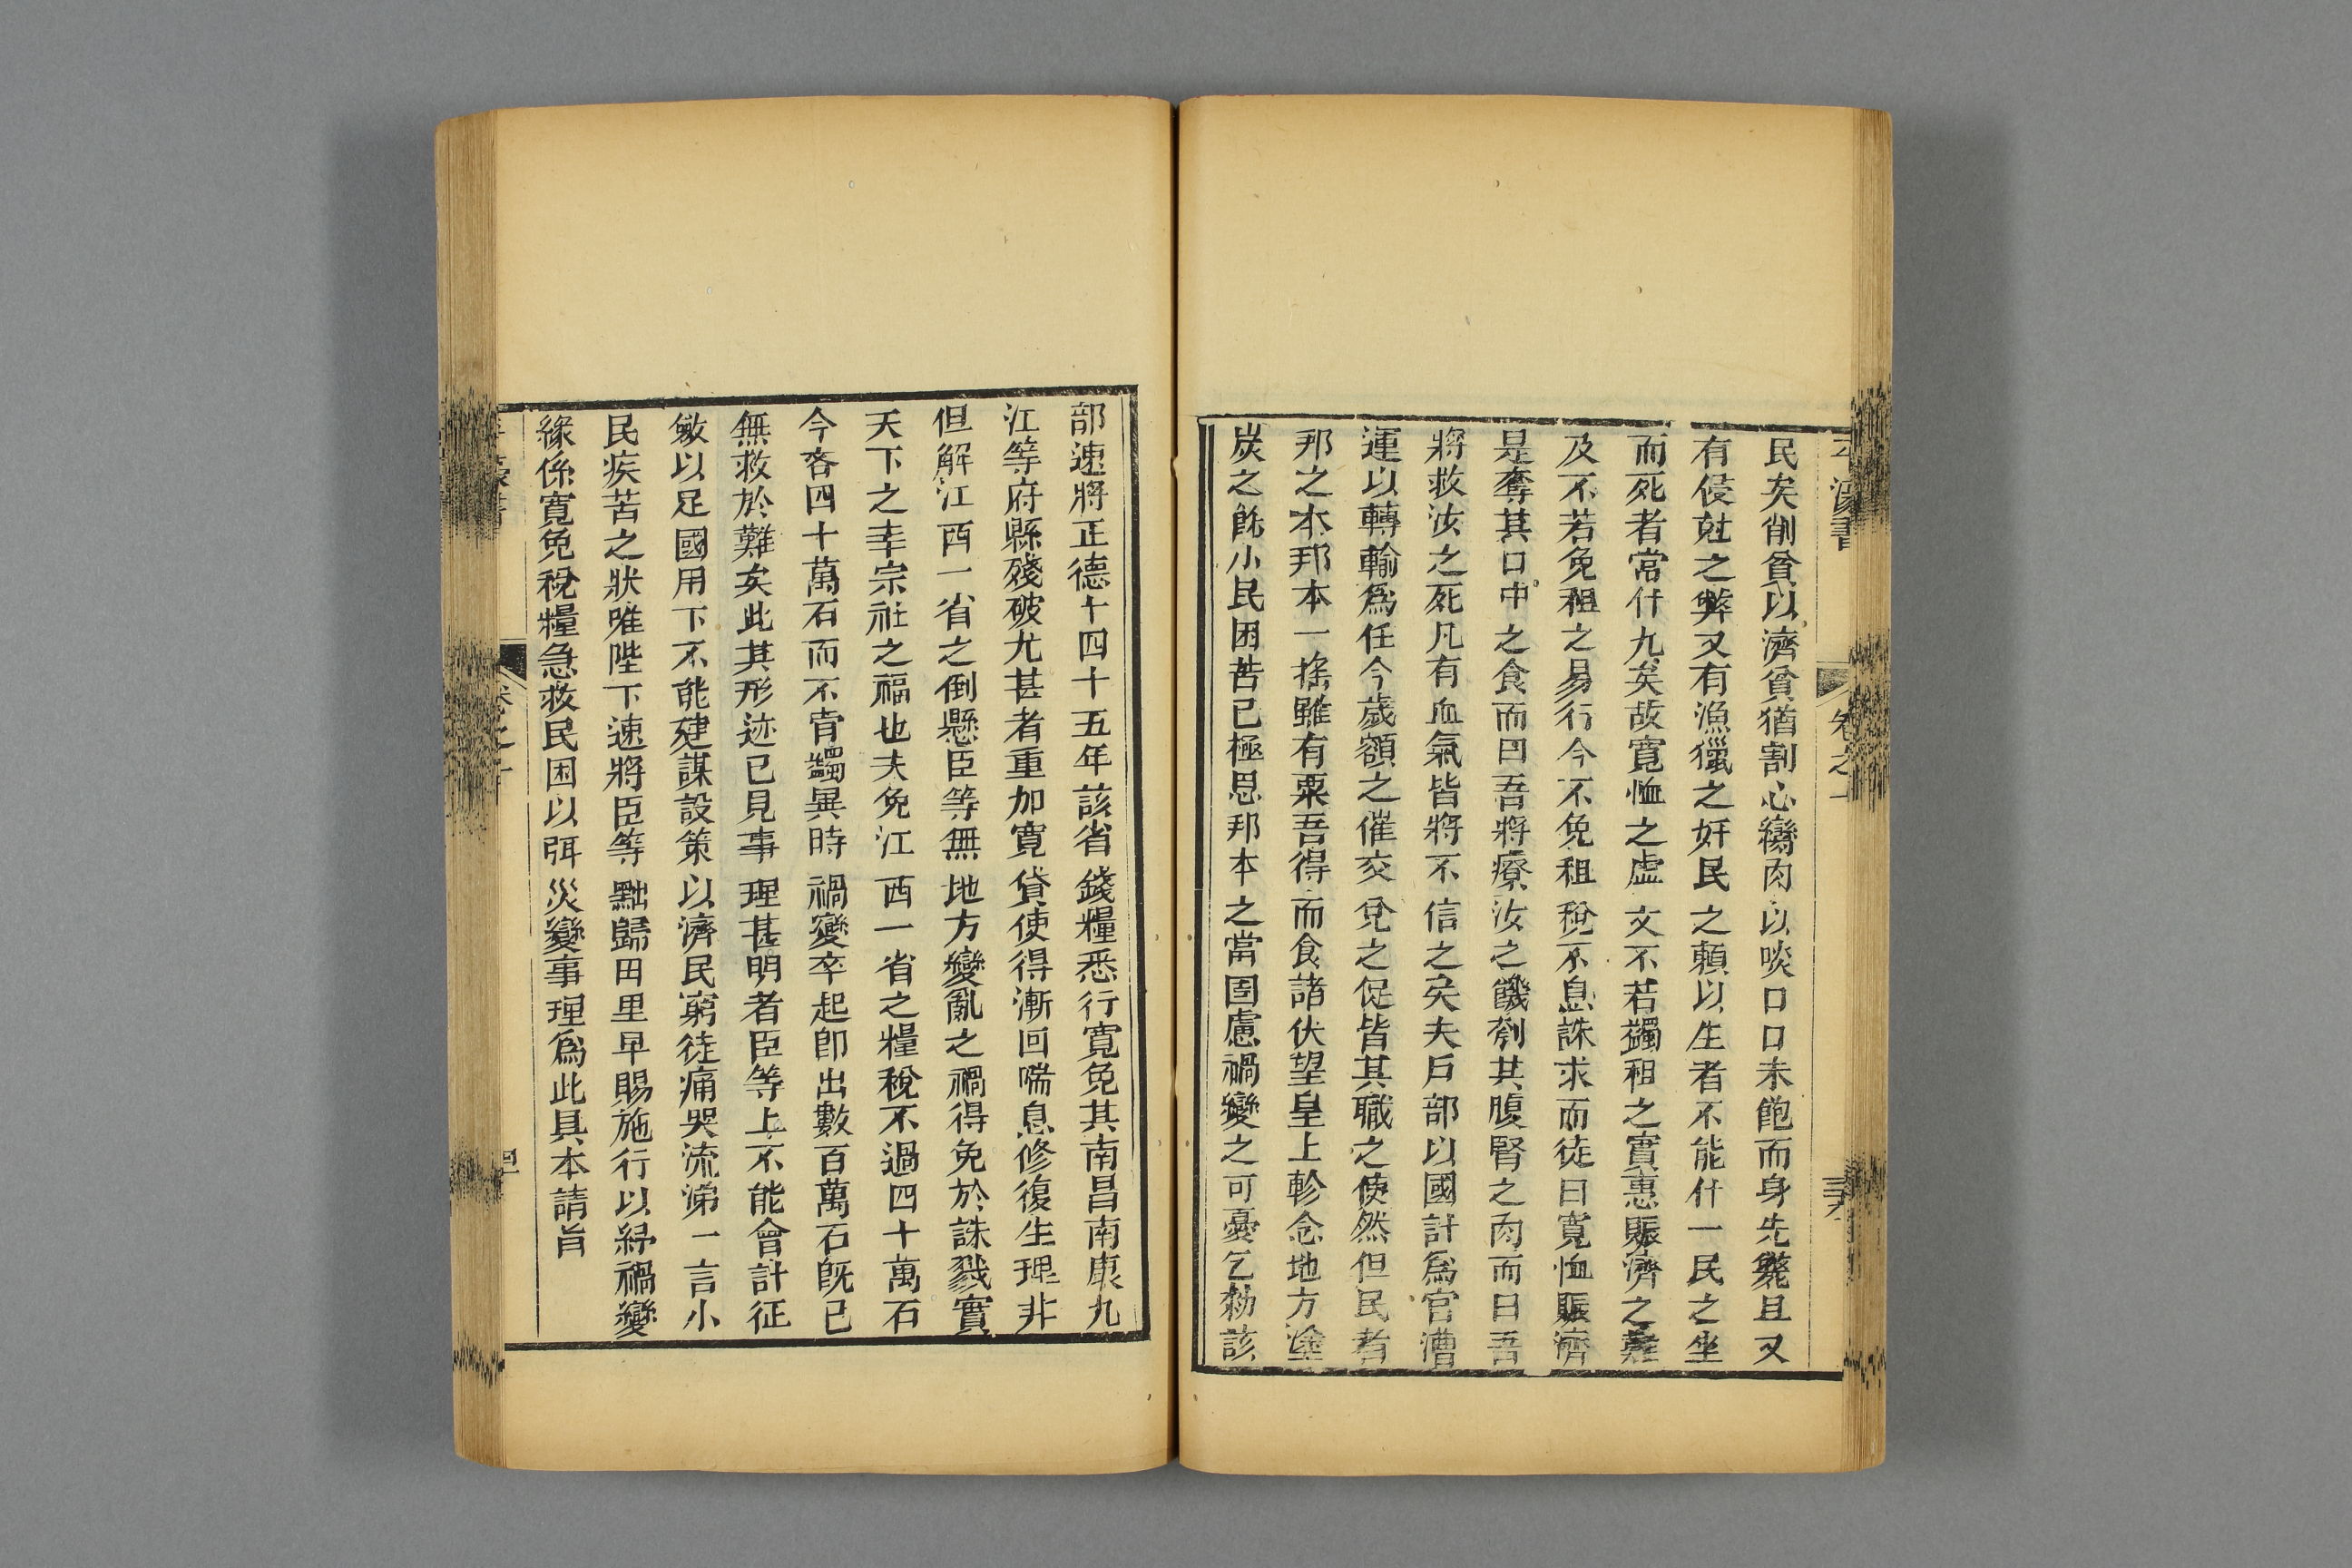 民矣削貧以濟貧猶割心臠肉以啖口口未飽而身先斃且又
有侵尅之弊又有漁獵之奸民之賴以生者不能什一民之坐
而死者常什九矣故寛恤之虛文不若蠲租之實惠賑濟之難
及不若免租之易行今不免租稅不息誅求而徒曰寛恤賑濟
是奪其口中之食而曰吾將療汝之饑刳其腹腎之肉而曰吾
將救汝之死凡有血氣皆將不信之矣夫戶部以國計爲官漕
運以轉輸爲任今歲額之催交兌之促皆其職之使然但民者
邦之本邦本一搖雖有粟吾得而食諸伏望皇上軫念地方塗
炭之餘小民困苦已極思邦本之當固慮禍變之可憂乞勑該
部速將正德十四十五年該省錢糧悉行寛免其南昌南康九
江等府縣殘破尤甚者重加寛貸使得漸回喘息修復生理非
但解江西一省之倒懸臣等無地方變亂之禍得免於誅戮實
天下之幸宗社之福也夫免江西一省之糧稅不過四十萬石
今吝四十萬石而不肯蠲異時禍變卒起卽出數百萬石旣已
無救於難矣此其形迹已見事理甚明者臣等上不能會計征
斂以足國用下不能建謀設策以濟民窮徒痛哭流涕一言小
民疾苦之狀唯陛下速將臣等黜歸田里早賜施行以紓禍變
緣係寛免稅糧急救民困以弭災變事理爲此具本請旨
卷之十